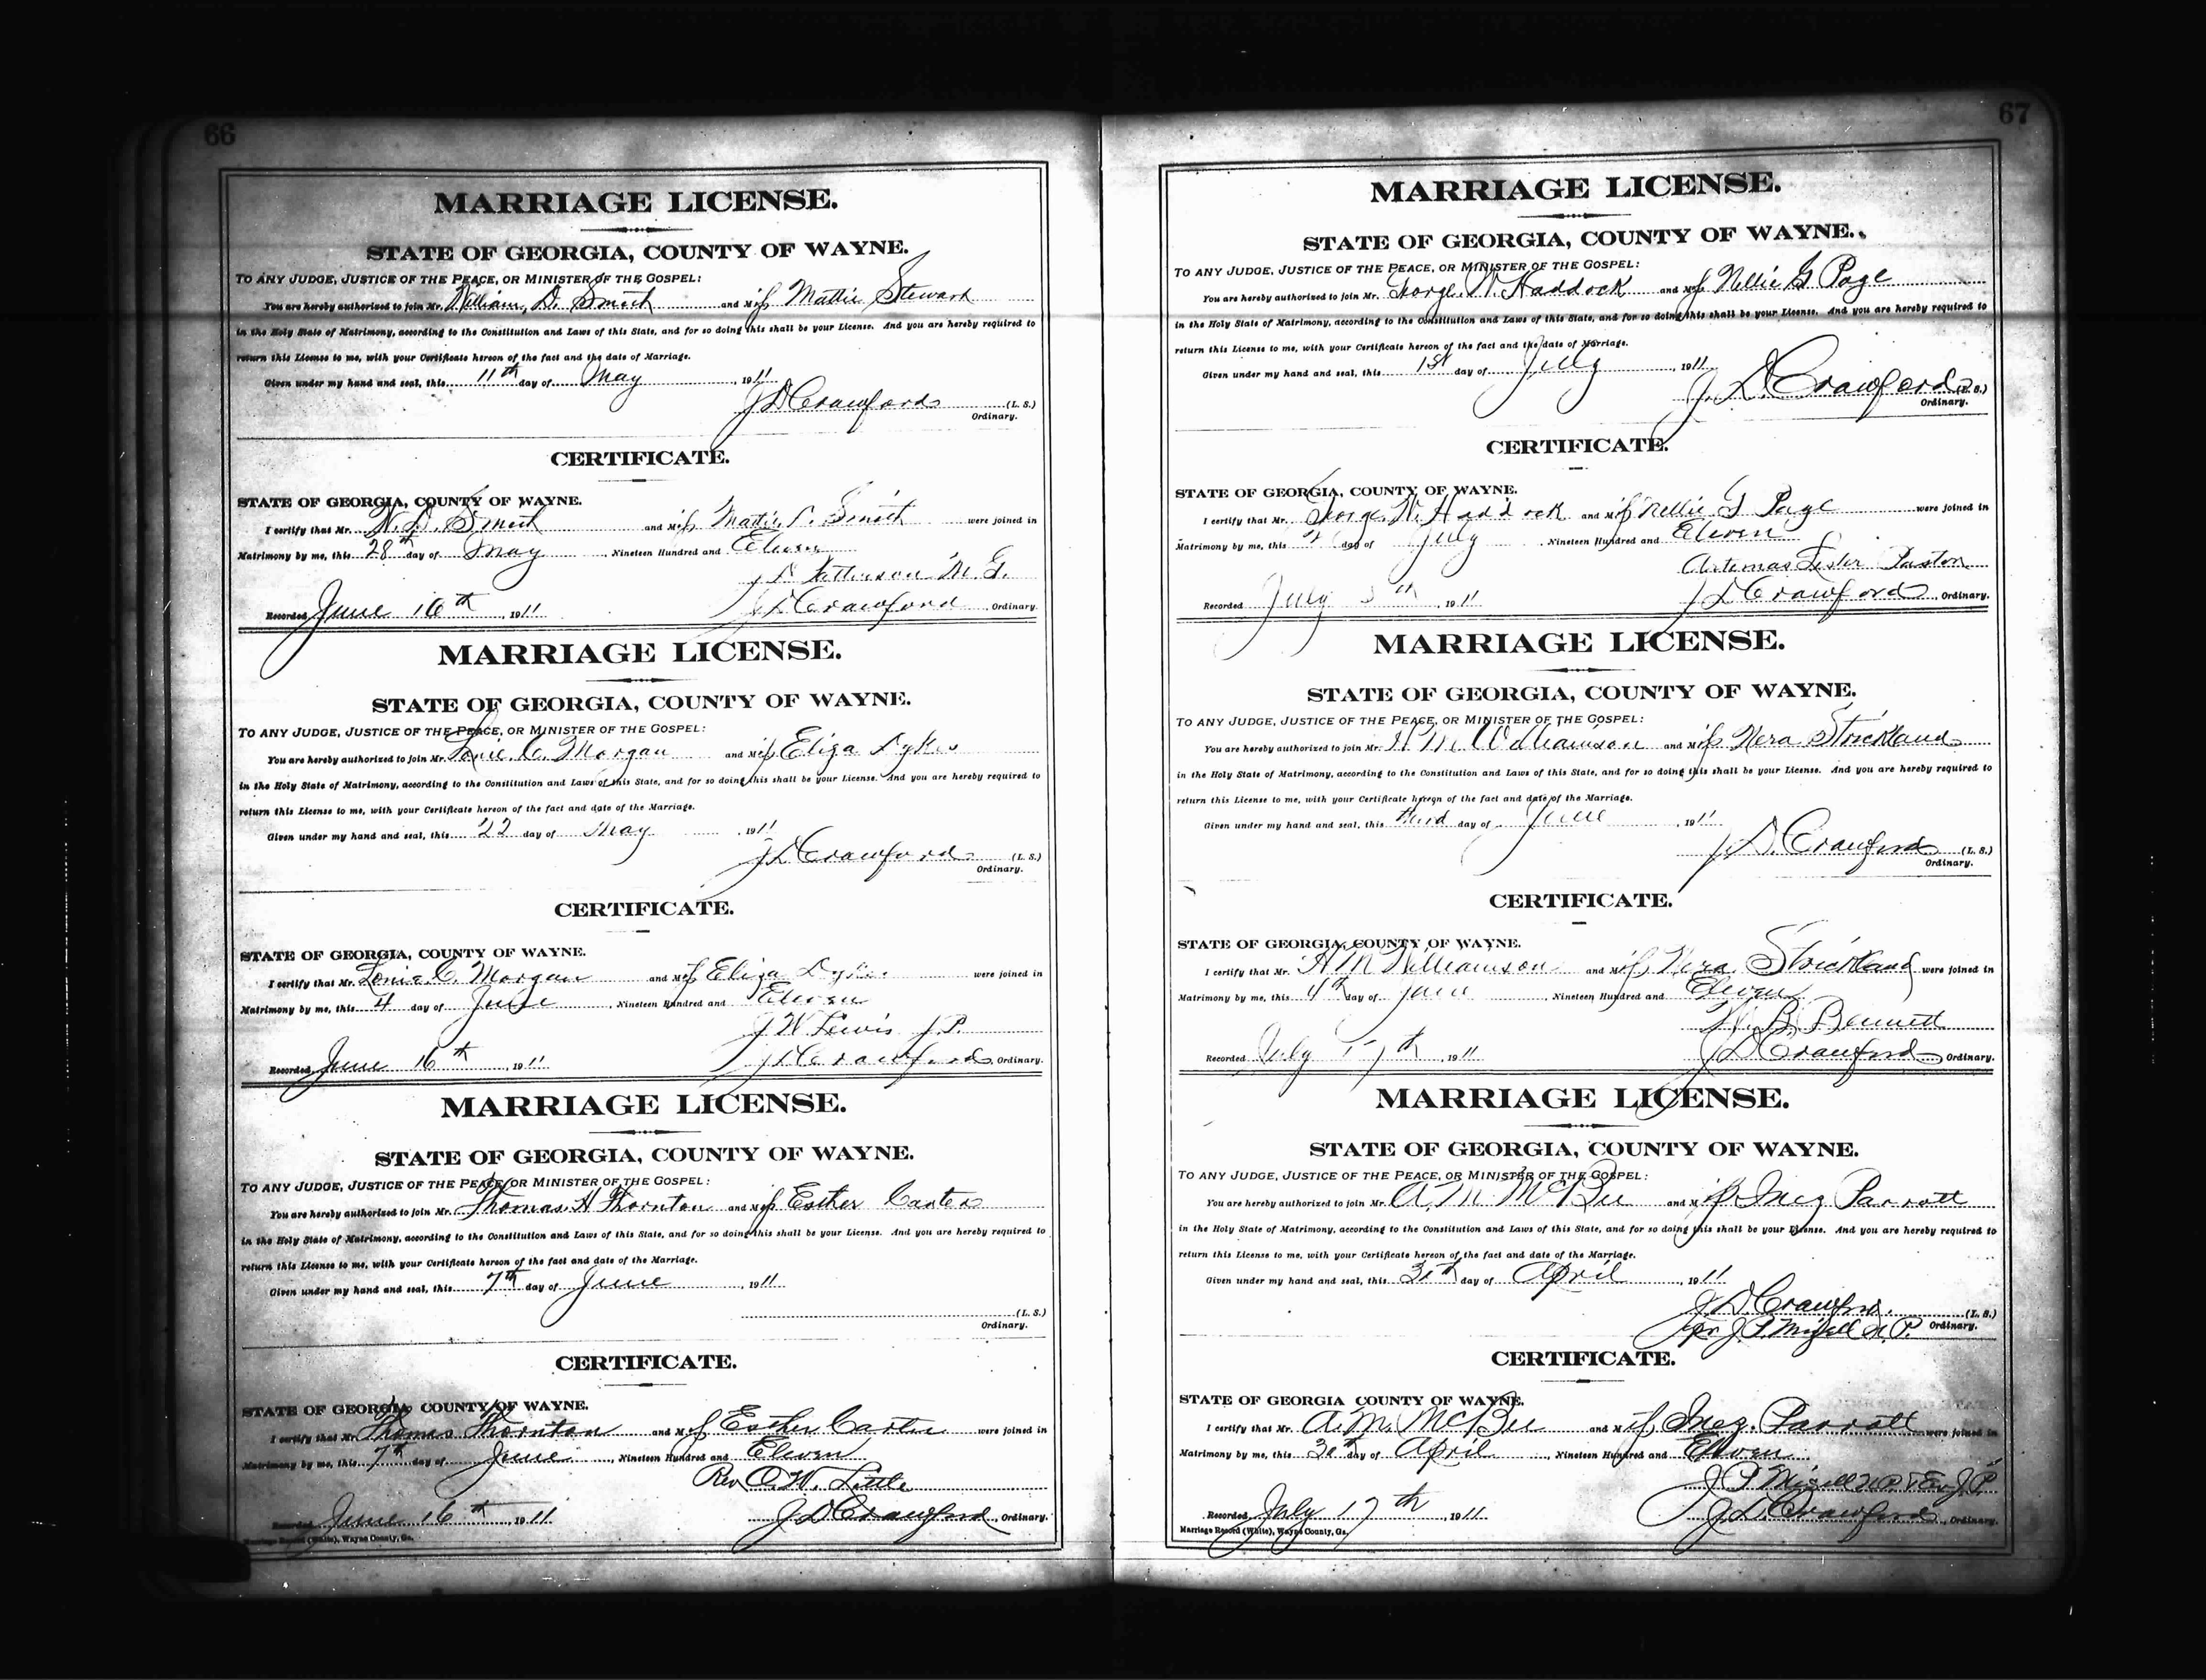 66
MARRIAGE LICENSE.
STATE OF GEORGIA, COUNTY OF WAYNE.
TO ANY JUDGE, JUSTICE OF THE PEACE, OR MINISTER OF THE GOSPEL:
You are hereby authorized to join Mr. William D. Smith and Miss Mattie Stewart
in the Holy State of Matrimony, according to the Constitution and Laws of this State, and for so doing this shall be your License. And you are hereby required to
return this License to me, with your Certificate hereon of the fact and the date of Marriage.
Given under my hand and seal, this 11th day of May, 1911
J D Crawford (L. S.)
Ordinary.
CERTIFICATE.
STATE OF GEORGIA, COUNTY OF WAYNE.
I certify that Mr. W. D. Smith and Miss Mattie Smith were joined in
Matrimony by me, this 28th day of May, Nineteen Hundred and Eleven
Patterson M. G.
Recorded June 16th, 1911 J D Crawford Ordinary.
MARRIAGE LICENSE.
STATE OF GEORGIA, COUNTY OF WAYNE.
TO ANY JUDGE, JUSTICE OF THE PEACE, OR MINISTER OF THE GOSPEL:
You are hereby authorized to join Mr. Lonie C. Morgan and Miss Eliza Dykes
in the Holy State of Matrimony, according to the Constitution and Laws of this State, and for so doing this shall be your License. And you are hereby required to
return this License to me, with your Certificate hereon of the fact and date of the Marriage.
Given under my hand and seal, this 22 day of May 1911
J D Crawford (L. S.)
Ordinary.
CERTIFICATE.
STATE OF GEORGIA, COUNTY OF WAYNE.
I certify that Mr. Lonie C. Morgan and Miss Eliza Dykes were joined in
Matrimony by me, this 4 day of June, Nineteen Hundred and Eleven
J W Lewis J. P.
Recorded June 16th, 1911 J D Crawford Ordinary.
MARRIAGE LICENSE.
STATE OF GEORGIA, COUNTY OF WAYNE.
TO ANY JUDGE, JUSTICE OF THE PEACE, OR MINISTER OF THE GOSPEL:
You are hereby authorized to join Mr. Thomas H Thornton and Miss Esther Carter
in the Holy State of Matrimony, according to the Constitution and Laws of this State, and for so doing this shall be your License. And you are hereby required to
return this License to me, with your Certificate hereon of the fact and date of the Marriage.
Given under my hand and seal, this 7th day of June, 1911
(L. S.)
Ordinary.
CERTIFICATE.
STATE OF GEORGIA, COUNTY OF WAYNE.
I certify that Mr. Thomas Thornton and Miss Esther Carter were joined in
Matrimony by me, this 7th day of June, Nineteen Hundred and Eleven
Rev O. W. Little
Recorded June 16th, 1911 J D Crawford, Ordinary.
Marriage Record (White), Wayne County, Ga.
67
MARRIAGE LICENSE.
STATE OF GEORGIA, COUNTY OF WAYNE.
TO ANY JUDGE, JUSTICE OF THE PEACE, OR MINISTER OF THE GOSPEL:
You are hereby authorized to join Mr. George W. Haddock and Miss Nellie G Page
in the Holy State of Matrimony, according to the Constitution and Laws of this State, and for so doing this shall be your License. And you are hereby required to
return this License to me, with your Certificate hereon of the fact and the date of Marriage.
Given under my hand and seal, this 1st day of July, 1911
J. D Crawford (L. S.)
Ordinary.
CERTIFICATE.
STATE OF GEORGIA, COUNTY OF WAYNE.
I certify that Mr. George W. Haddock and Miss Nellie G Page were joined in
Matrimony by me, this day of July, Nineteen Hundred and Eleven
Artemas Lester Pastor
Recorded July 5th, 1911 J D Crawford, Ordinary.
MARRIAGE LICENSE.
STATE OF GEORGIA, COUNTY OF WAYNE.
TO ANY JUDGE, JUSTICE OF THE PEACE, OR MINISTER OF THE GOSPEL:
You are hereby authorized to join Mr. H M Williamson and Miss Nera Strickland
in the Holy State of Matrimony, according to the Constitution and Laws of this State, and for so doing this shall be your License. And you are hereby required to
return this License to me, with your Certificate hereon of the fact and date of the Marriage.
Given under my hand and seal, this third day of June, 1911
J. D. Crawford (L. S.)
Ordinary.
CERTIFICATE.
STATE OF GEORGIA, COUNTY OF WAYNE.
I certify that Mr. H M Williamson and Miss Nera Strickland were joined in
Matrimony by me, this 4th day of June, Nineteen Hundred and Eleven
W. B. Bennett
Recorded July 17th, 1911 J D Crawford Ordinary.
MARRIAGE LICENSE.
STATE OF GEORGIA, COUNTY OF WAYNE.
TO ANY JUDGE, JUSTICE OF THE PEACE, OR MINISTER OF THE GOSPEL:
You are hereby authorized to join Mr. A. M. McBee and Miss Inez Parrott
in the Holy State of Matrimony, according to the Constitution and Laws of this State, and for so doing this shall be your License. And you are hereby required to
return this License to me, with your Certificate hereon of the fact and date of the Marriage.
Given under my hand and seal, this 30th day of April, 1911
J. D Crawford. (L. S.)
per J. P. Mizell N. P. Ordinary.
CERTIFICATE.
STATE OF GEORGIA COUNTY OF WAYNE.
I certify that Mr. A. M. McBee and Miss Inez Parrott were joined in
Matrimony by me, this 30th day of April, Nineteen Hundred and Eleven
J P Mizell N. P. & Ex J. P.
Recorded July 17th, 1911 J. D. Crawford, Ordinary.
Marriage Record (White), Wayne County, Ga.